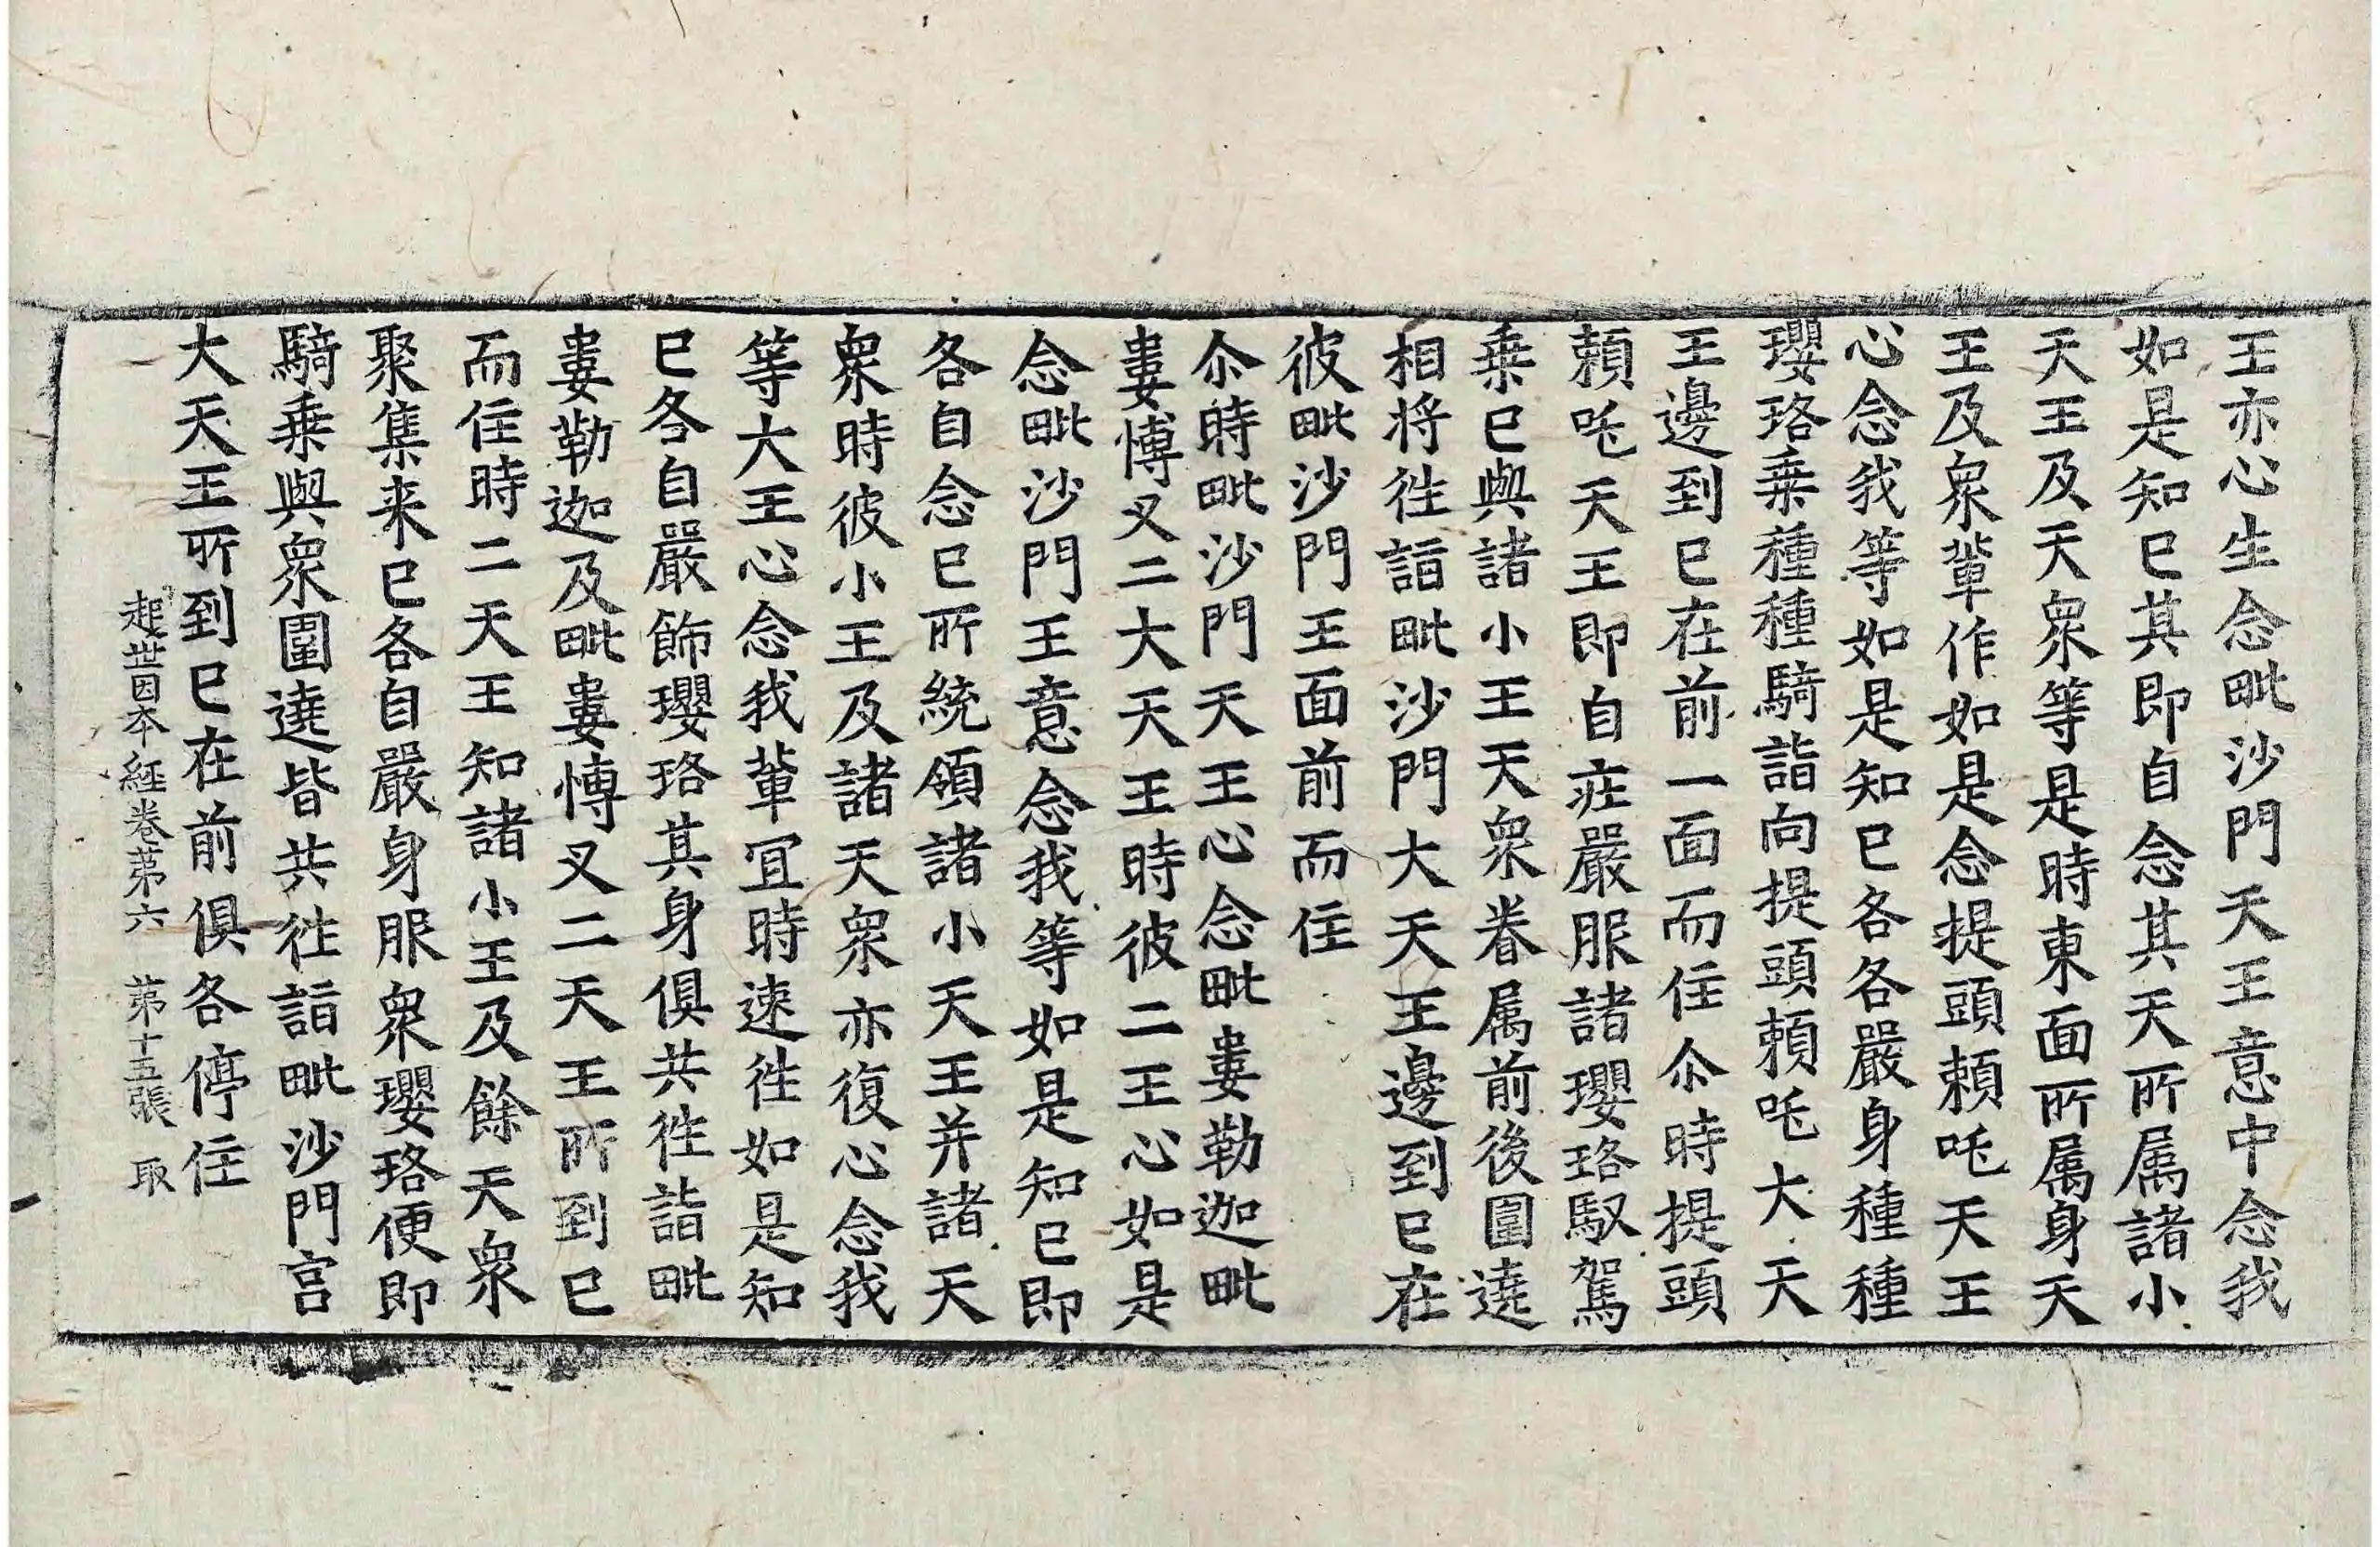 王亦心生念毗沙門天王意中念我
如是知已其即自念其天所属諸小
天王及天衆等是時東面所属身天
王及衆軰作如是念提頭頼吒天王
心念我等如是知已各各嚴身種種
瓔珞乗種種騎詣向提頭頼吒大天
王邊到已在前一面而住尒時提頭
頼吒天王即自疘嚴服諸瓔珞馭駕
乗已與諸小王天衆眷属前後圍遶
相将徃詣毗沙門大天王邊到已在
彼毗沙門王面前而住
尒時毗沙門天王心念毗婁勒迦毗
婁博叉二大天王時彼二王心如是
念毗沙門王意念我等如是知已即
各自念已所統領諸小天王并諸天
衆時彼小王及諸天衆亦復心念我
等大王心念我軰冝時速徃如是知
已各自嚴飾瓔珞其身俱共徃詣毗
婁勒迦及毗婁博叉二天王所到已
而住時二天王知諸小王及餘天衆
聚集来已各自嚴身服衆瓔珞便即
騎乗與衆圍遶皆共徃詣毗沙門宫
大天王所到已在前俱各停住
起世因本經卷苐六 苐十五張 取